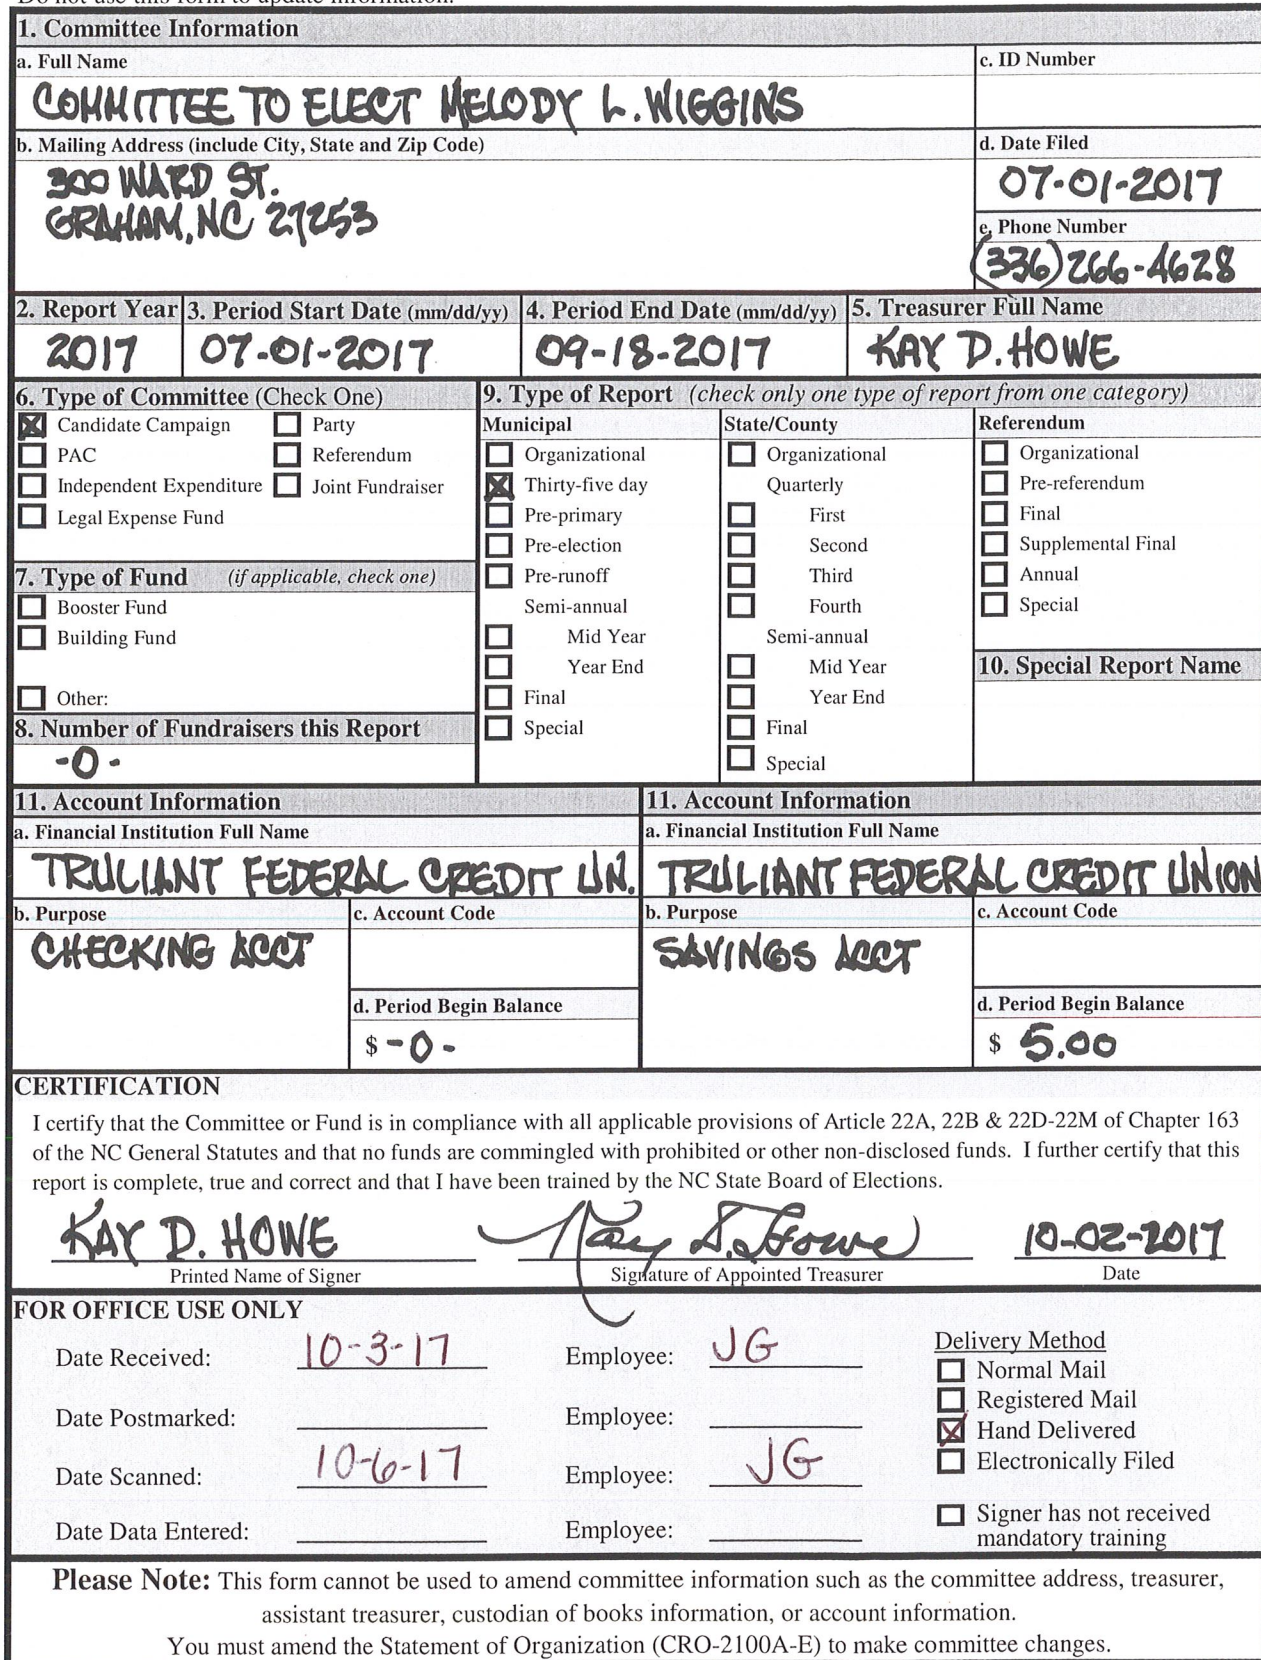 Do not use this form to update information.
1. Committee Information
a. Full Name
c. ID Number
COMMITTEE TO ELECT MELODY L. WIGGINS
b. Mailing Address (include City, State and Zip Code)
d. Date Filed
300 WARD ST.
07-01-2017
GRAHAM, NC 27253
e. Phone Number
(336) 266-4628
2. Report Year 3. Period Start Date (mm/dd/yy) 4. Period End Date (mm/dd/yy) 5. Treasurer Full Name
2017 07-01-2017 09-18-2017 KAY D. HOWE
6. Type of Committee (Check One)
Candidate Campaign Party
PAC Referendum
Independent Expenditure Joint Fundraiser
Legal Expense Fund
7. Type of Fund (if applicable, check one)
Booster Fund
Building Fund
Other:
8. Number of Fundraisers this Report
-0-
9. Type of Report (check only one type of report from one category)
Municipal
Organizational
Thirty-five day
Pre-primary
Pre-election
Pre-runoff
Semi-annual
Mid Year
Year End
Final
Special
State/County
Organizational
Quarterly
First
Second
Third
Fourth
Semi-annual
Mid Year
Year End
Final
Special
Referendum
Organizational
Pre-referendum
Final
Supplemental Final
Annual
Special
10. Special Report Name
11. Account Information
a. Financial Institution Full Name
TRULIANT FEDERAL CREDIT UN.
b. Purpose
c. Account Code
CHECKING ACCT
d. Period Begin Balance
$ -0-
11. Account Information
a. Financial Institution Full Name
TRULIANT FEDERAL CREDIT UNION
b. Purpose
c. Account Code
SAVINGS ACCT
d. Period Begin Balance
$ 5.00
CERTIFICATION
I certify that the Committee or Fund is in compliance with all applicable provisions of Article 22A, 22B & 22D-22M of Chapter 163
of the NC General Statutes and that no funds are commingled with prohibited or other non-disclosed funds. I further certify that this
report is complete, true and correct and that I have been trained by the NC State Board of Elections.
KAY D. HOWE Kay D. Howe 10-02-2017
Printed Name of Signer Signature of Appointed Treasurer Date
FOR OFFICE USE ONLY
Date Received: 10-3-17 Employee: JG
Date Postmarked: Employee:
Date Scanned: 10-6-17 Employee: JG
Date Data Entered: Employee:
Delivery Method
Normal Mail
Registered Mail
Hand Delivered
Electronically Filed
Signer has not received
mandatory training
Please Note: This form cannot be used to amend committee information such as the committee address, treasurer,
assistant treasurer, custodian of books information, or account information.
You must amend the Statement of Organization (CRO-2100A-E) to make committee changes.